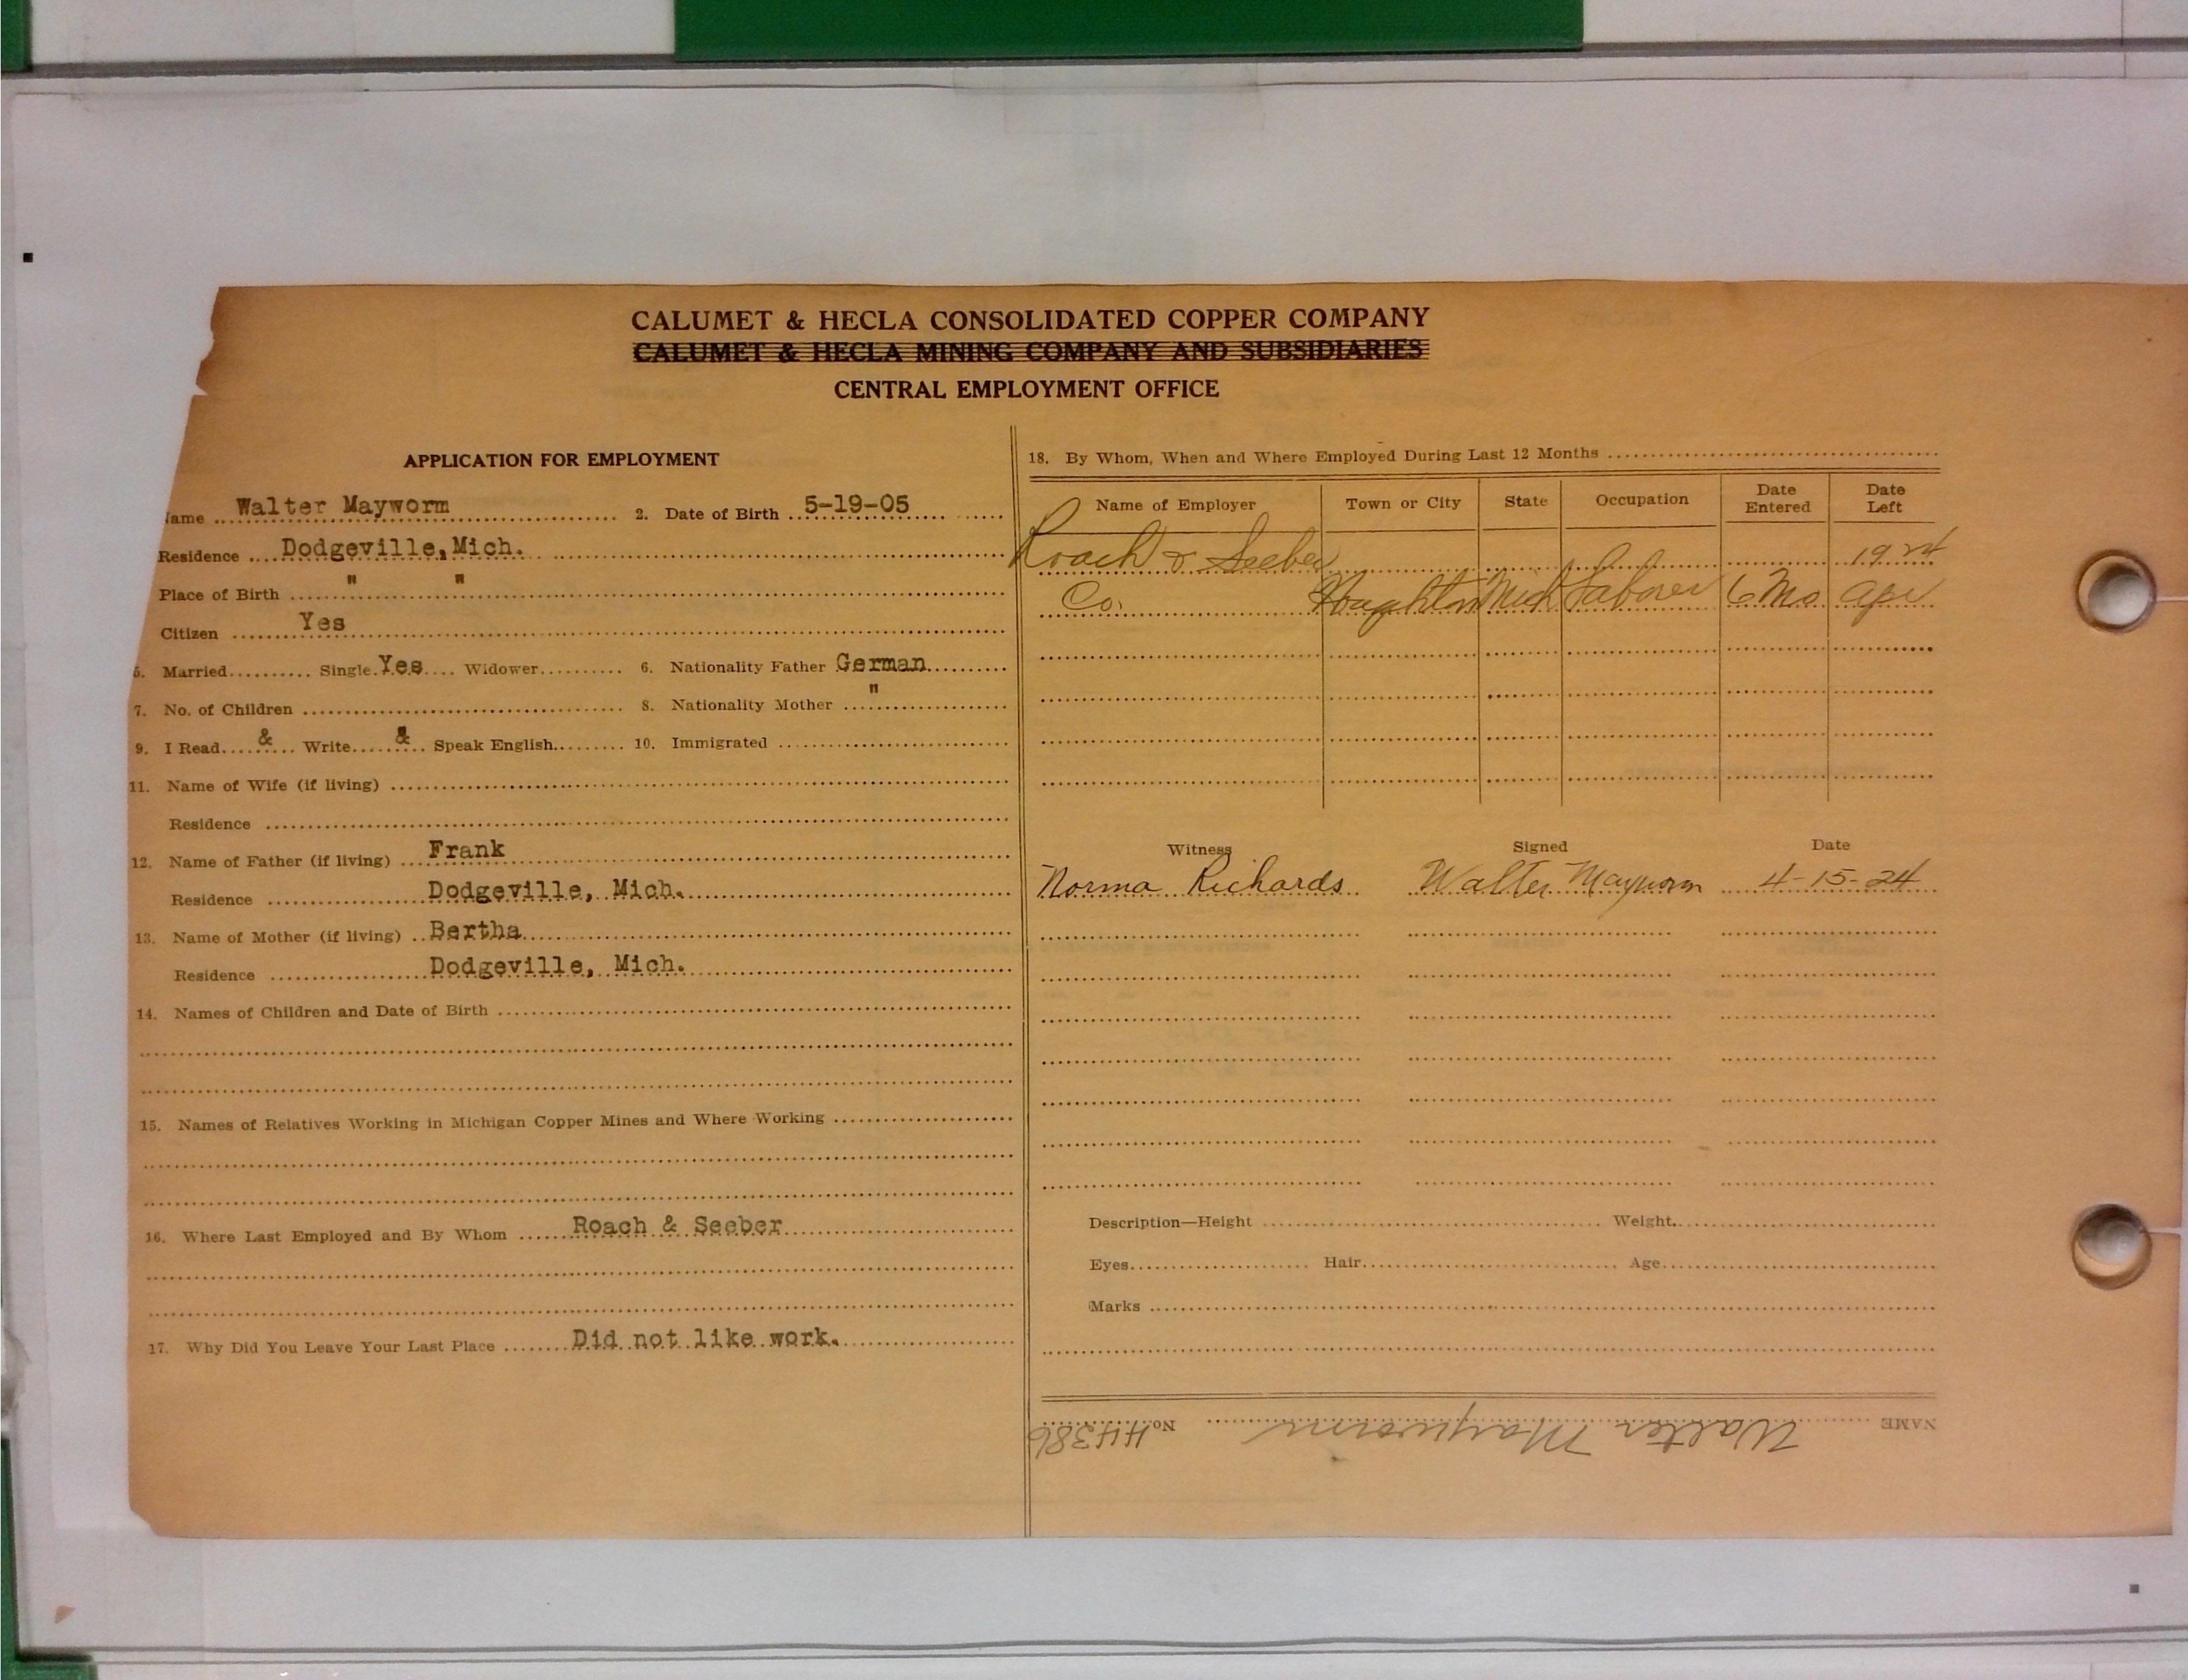 CALUMET & HECLA CONSOLIDATED COPPER COMPANY
CALUMET & HECLA MINING COMPANY AND SUBSIDIARIES
CENTRAL EMPLOYMENT OFFICE
APPLICATION FOR EMPLOYMENT
ame Walter Mayworm 2. Date of Birth 5-19-05
Residence Dodgeville, Mich.
Place of Birth " "
Citizen Yes
5. Married Single Yes Widower 6. Nationality Father German
7. No. of Children 8. Nationality Mother "
9. I Read & Write & Speak English 10. Immigrated
11. Name of Wife (if living)
Residence
12. Name of Father (if living) Frank
Residence Dodgeville, Mich.
13. Name of Mother (if living) Bertha
Residence Dodgeville, Mich.
14. Names of Children and Date of Birth
15. Names of Relatives Working in Michigan Copper Mines and Where Working
16. Where Last Employed and By Whom Roach & Seeber
17. Why Did You Leave Your Last Place Did not like work.
18. By Whom, When and Where Employed During Last 12 Months
Name of Employer Town or City State Occupation Date Entered Date Left
Roach & Seeber 1924
Co. Houghton Mich Laborer 6 Mo Apr
Witness Signed Date
Norma Richards Walter Mayworm 4-15-24
Description—Height Weight
Eyes Hair Age
Marks
NAME Walter Mayworm No. 44386